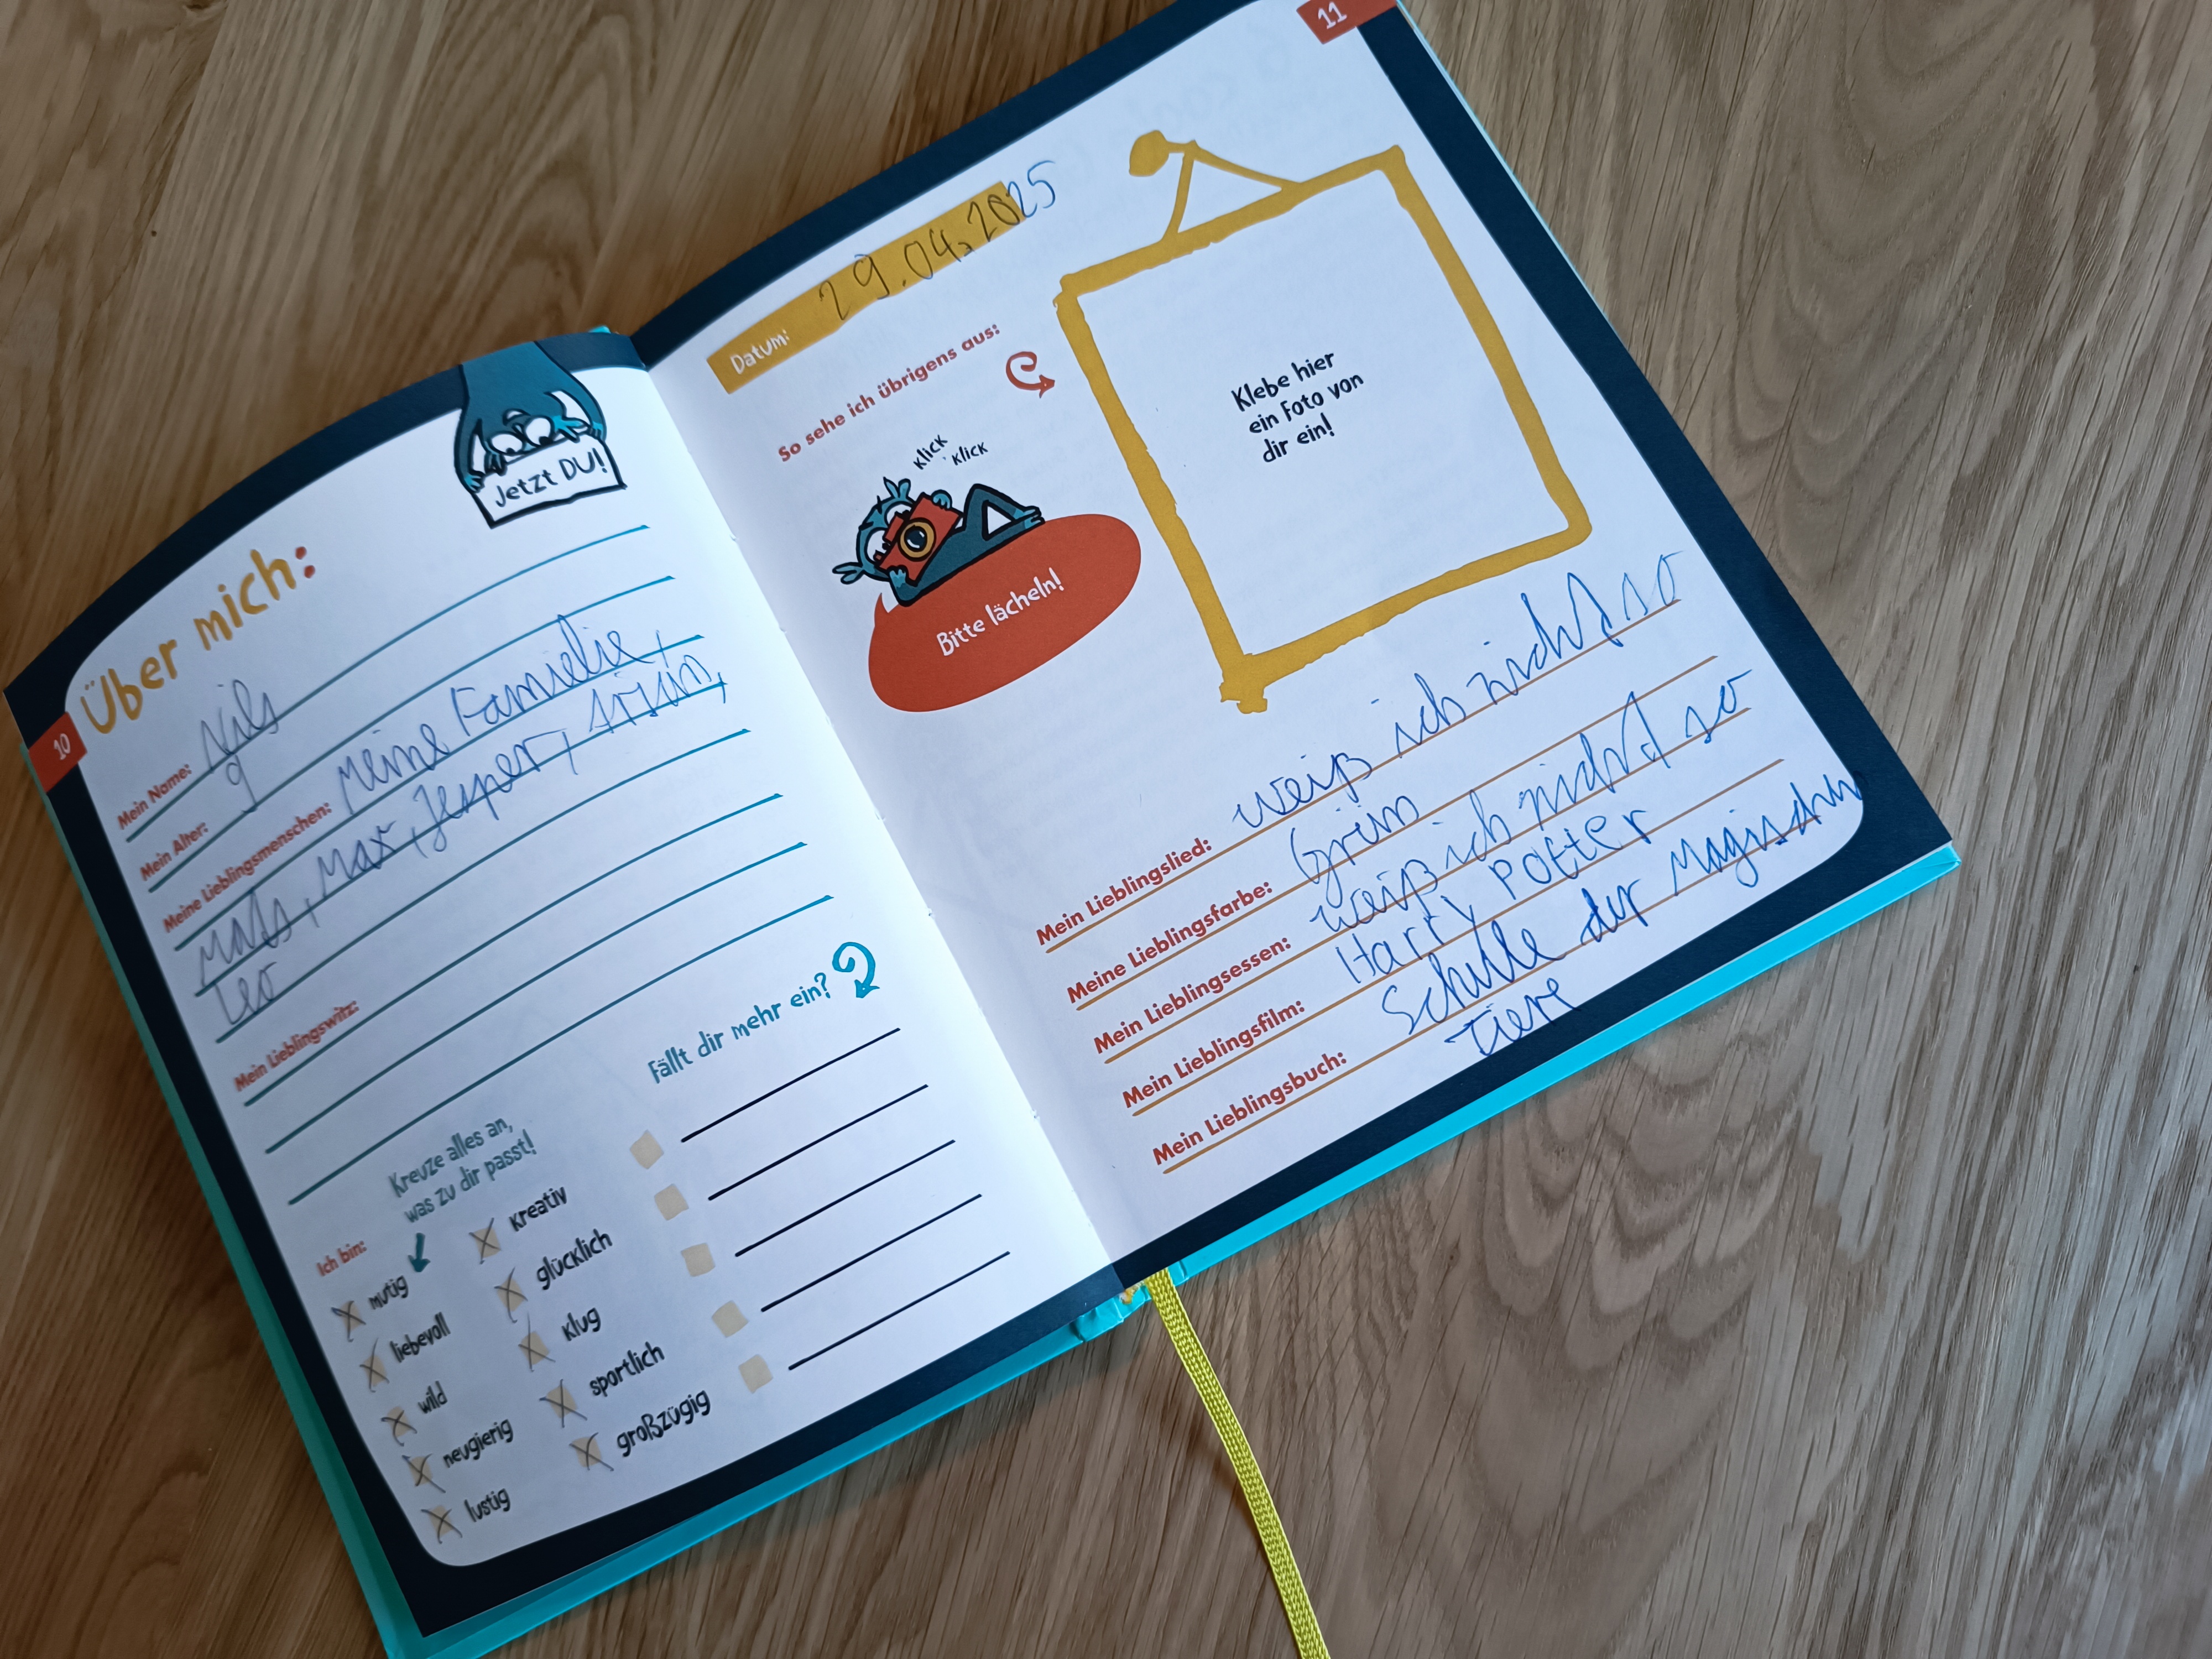 10
Jetzt DU!
Über mich:
Mein Name: Nils
Mein Alter: 9
Meine Lieblingsmenschen: Meine Familie,
Mats, Max, Jesper, Arian,
Leo
Mein Lieblingswitz:
Kreuze alles an,
was zu dir passt!
Ich bin:
mutig
liebevoll
wild
neugierig
lustig
kreativ
glücklich
klug
sportlich
großzügig
Fällt dir mehr ein?
11
Datum: 29.04.2025
So sehe ich übrigens aus:
Klick
Klick
Bitte lächeln!
Klebe hier
ein Foto von
dir ein!
Mein Lieblingslied: weiß ich nicht so
Meine Lieblingsfarbe: Grün
Mein Lieblingsessen: weiß ich nicht so
Mein Lieblingsfilm: Harry Potter
Mein Lieblingsbuch: Schule der Magischen
tiere